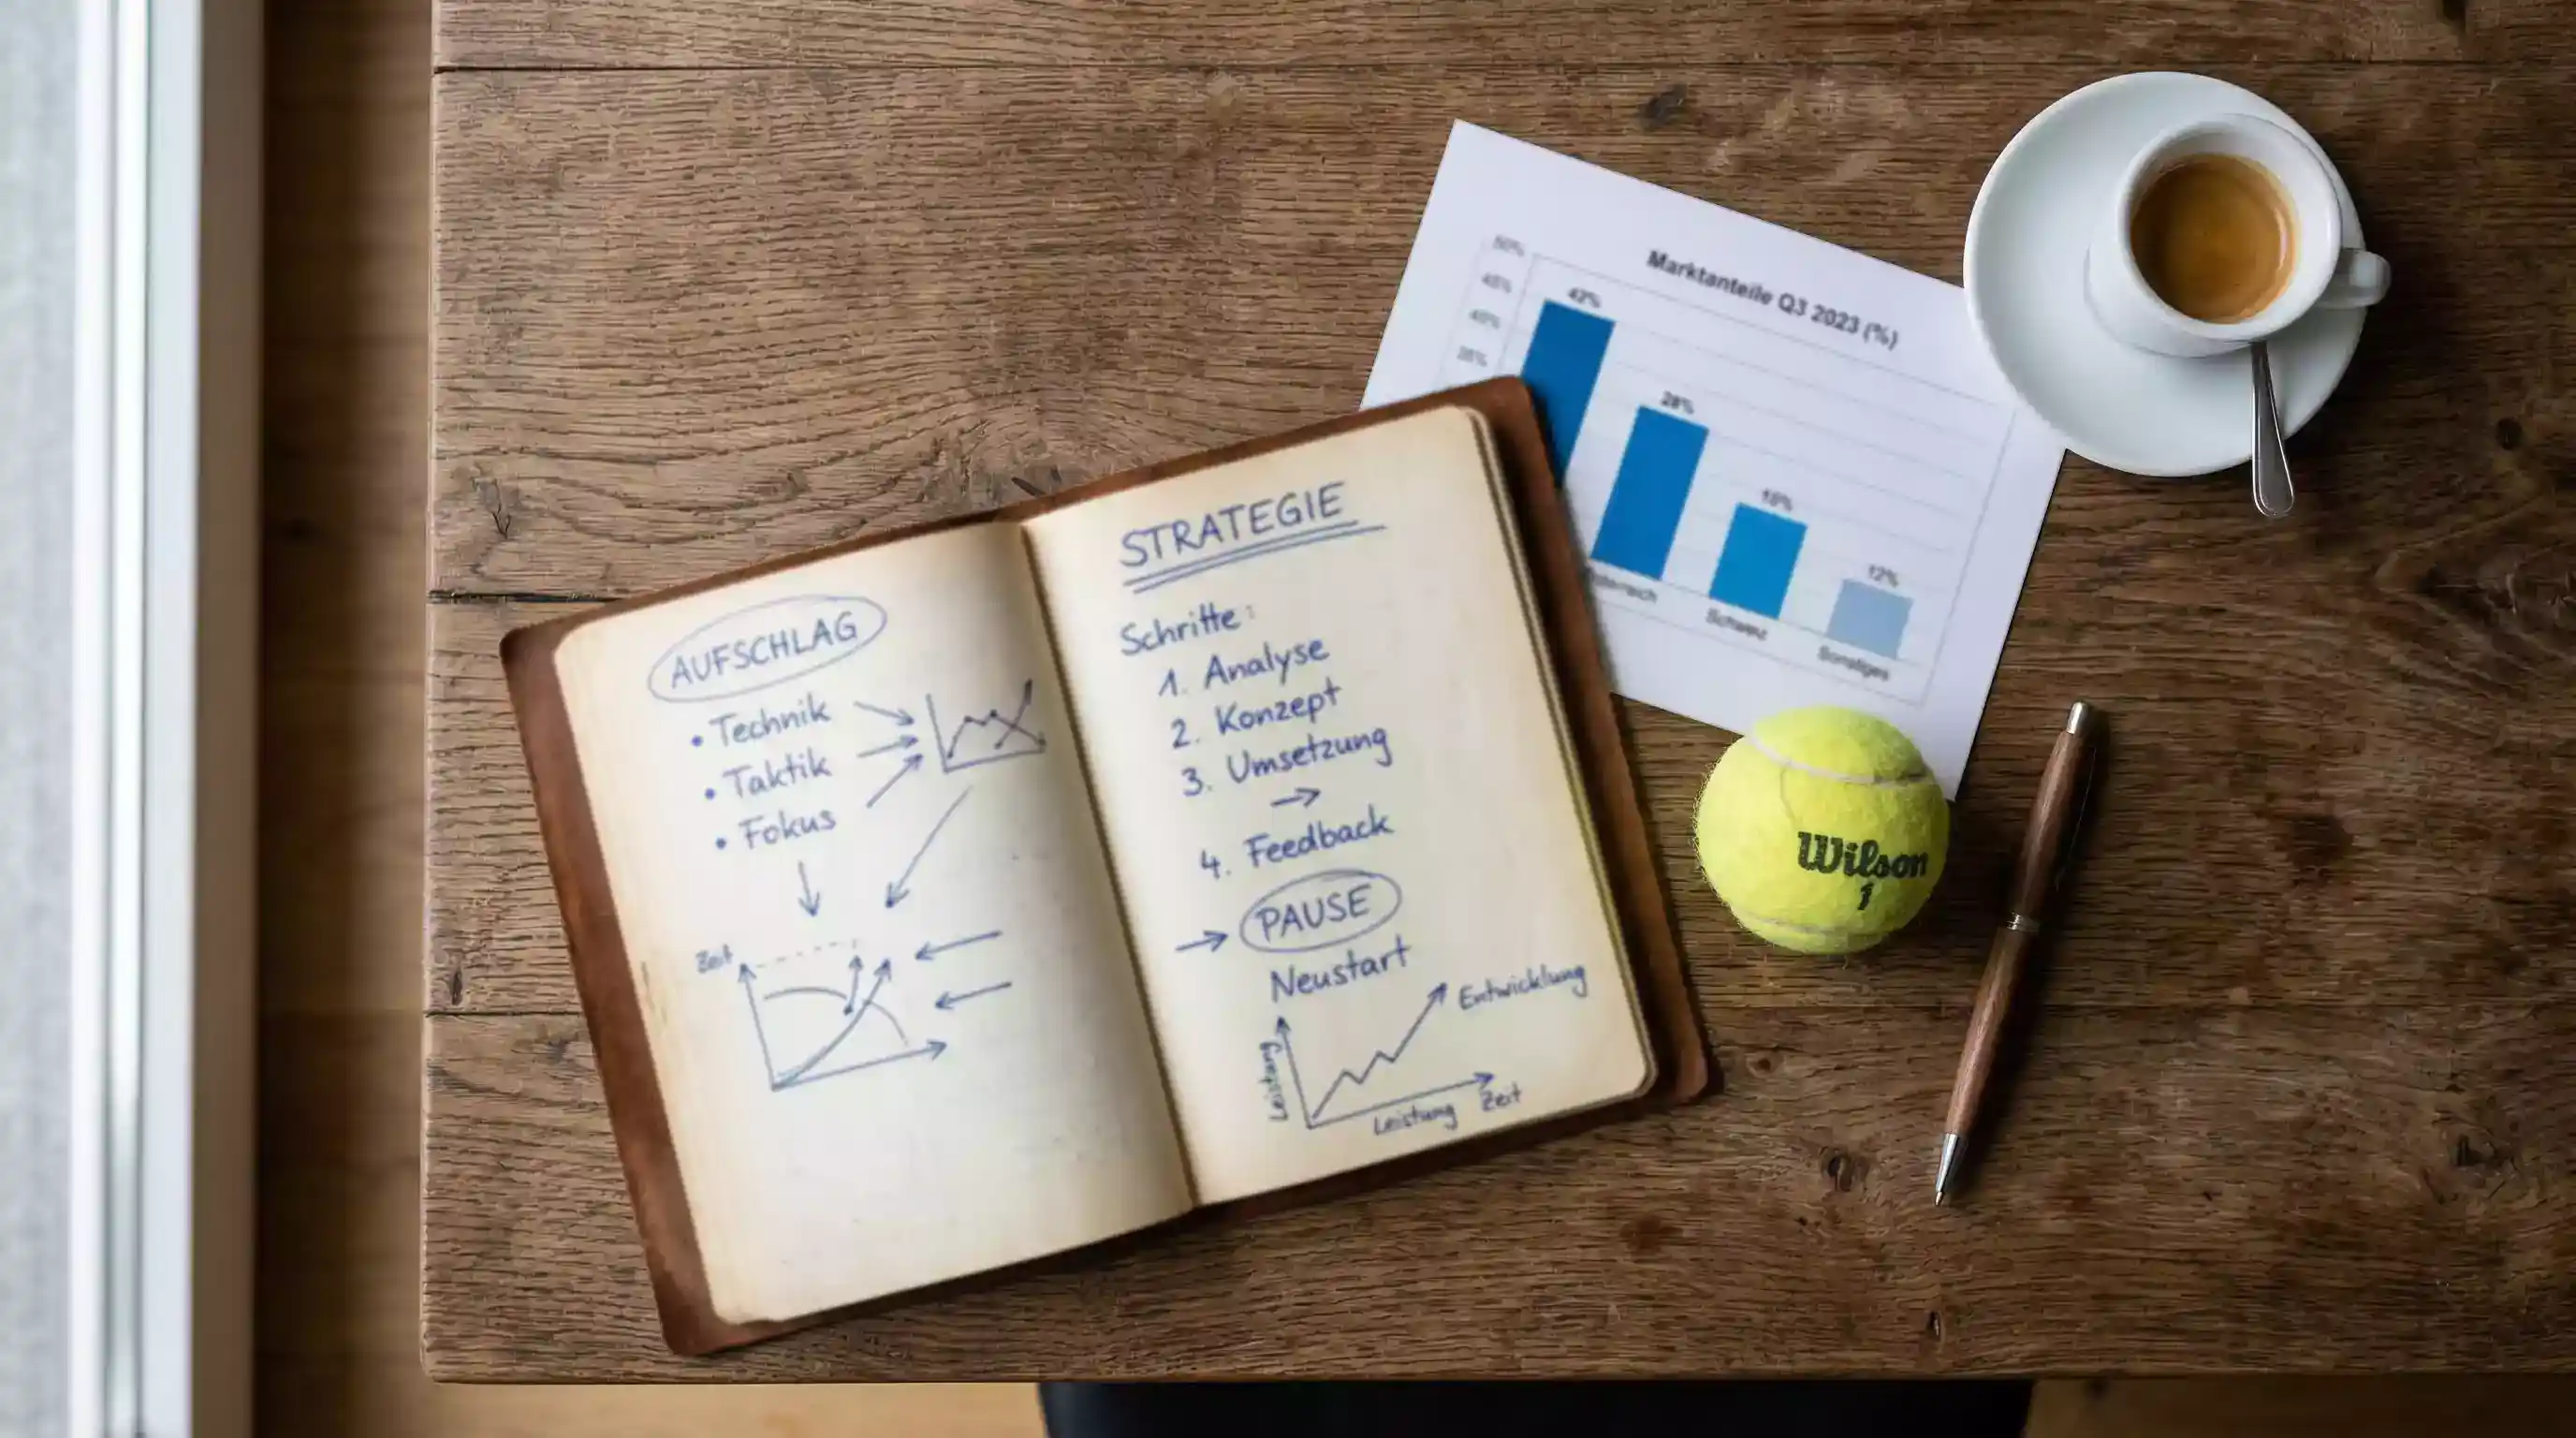 AUFSCHLAG
• Technik
• Taktik
• Fokus
Zeit
STRATEGIE
Schritte:
1. Analyse
2. Konzept
3. Umsetzung
→
4. Feedback
→ PAUSE
Neustart
Entwicklung
Leistung
Leistung
Zeit
Marktanteile Q3 2023 (%)
50%
45%
40%
35%
42%
28%
18%
12%
Schweiz
Sonstiges
Wilson
1